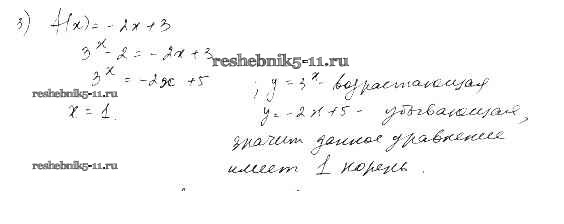 3) f(x) = -2x+3
3^x - 2 = -2x+3
reshebnik5-11.ru
3^x = -2x +5 ; y = 3^x - возрастающая
reshebnik5-11.ru
x = 1. y = -2x+5 - убывающая,
значит данное уравнение
reshebnik5-11.ru
имеет 1 корень.